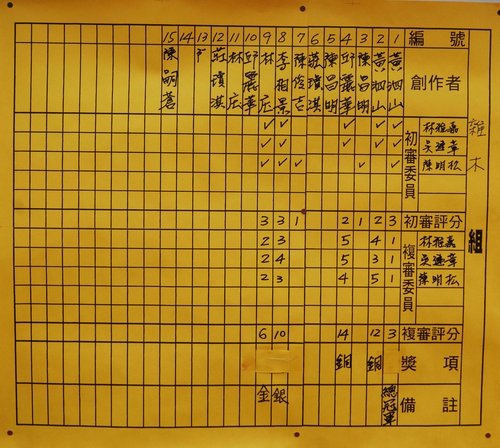 雜木組
編號 1 2 3 4 5 6 7 8 9 10 11 12 13 14 15
創作者 黃泗山 黃泗山 陳昌明 邱麗華 陳昌明 莊瓊淇 陳俊吉 李相景 林庄 邱麗華 林庄 莊瓊淇 陳嗣蒼
初審委員
林雅嘉 ✓ ✓ ✓ ✓ ✓
吳 ✓ ✓ ✓ ✓ ✓
陳明松 ✓ ✓ ✓ ✓ ✓
初審評分 3 2 1 2 1 3 3
複審委員
林雅嘉 1 4 5 3 2
吳 1 3 5 4 2
陳明松 1 5 4 3 2
複審評分 3 12 14 10 6
獎項 銅 銅
備註 總冠軍 銀 金